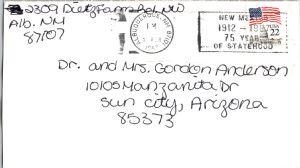 2309 Dietz Farm Rd, NW
Alb. NM
87107
ALBUQUERQUE, NM
PM
1987
NEW MEXICO
1912 - 1987
75 YEARS
OF STATEHOOD
USA
22
Dr. and Mrs. Gordon Anderson
10105 Manzanita Dr
Sun City, Arizona
85373